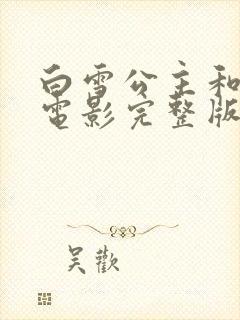 白雪公主和
電影完整版
吴歡